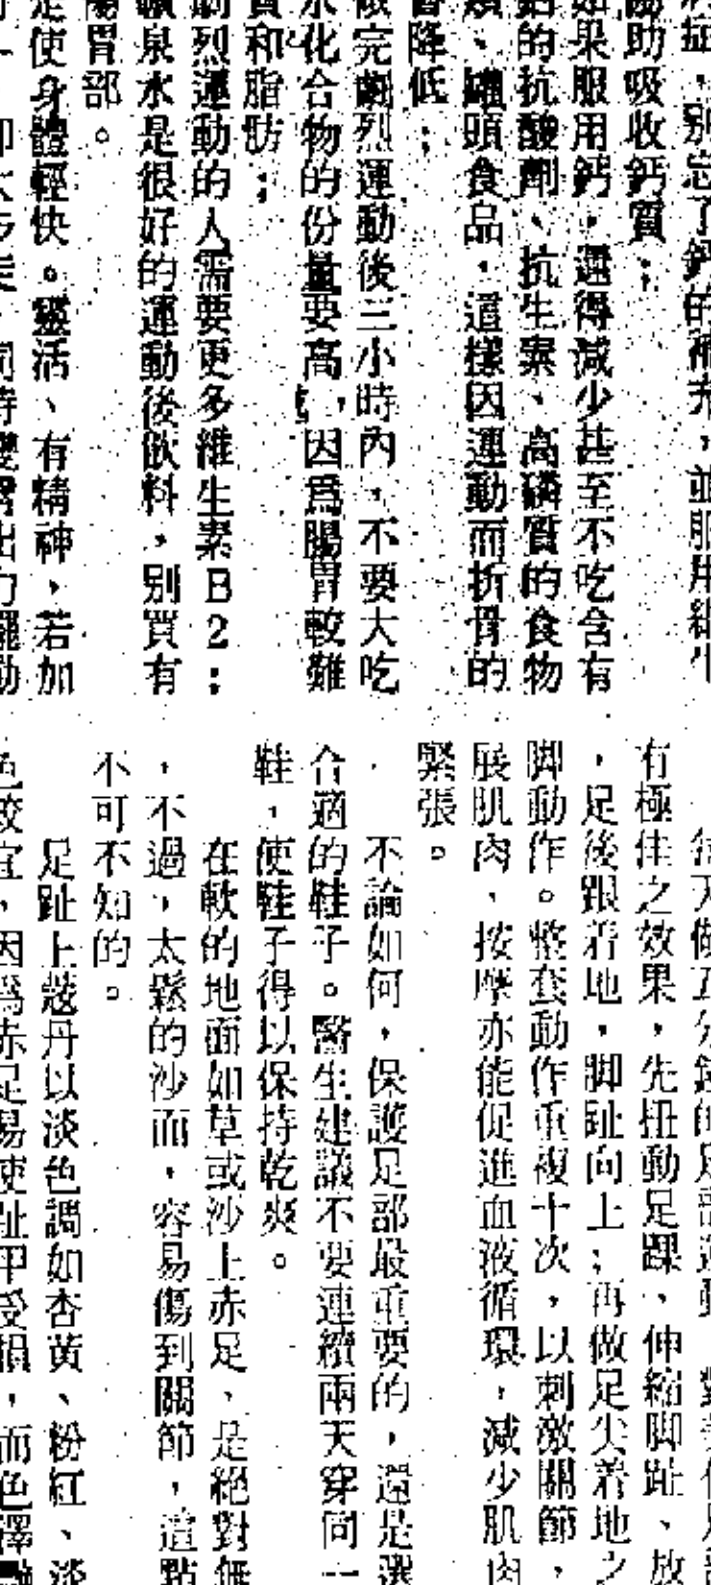 症，別忘了鈣的補充，並服用維生
助吸收鈣質；
如果服用鈣，還得減少甚至不吃含有
的抗酸劑、抗生素、高磷質的食物
、罐頭食品，這樣因運動而折骨的
降低；
完劇烈運動後三小時內，不要大吃
化合物的份量要高，因爲腸胃較難
和脂肪；
劇烈運動的人需要更多維生素B2；
礦泉水是很好的運動後飲料，別買有
腸胃部。
使身體輕快。靈活、有精神，若加
有極佳之效果，先扭動足踝、伸縮脚趾、放
，足後跟着地，脚趾向上；再做足尖着地之
脚動作。整套動作重複十次，以刺激關節，
展肌肉，按摩亦能促進血液循環，減少肌肉
緊張。
不論如何，保護足部最重要的，還是選
合適的鞋子。醫生建議不要連續兩天穿同一
鞋，使鞋子得以保持乾爽。
在軟的地面如草或沙上赤足，是絕對無
，不過，太鬆的沙面，容易傷到關節，這點
不可不知的。
足趾上蔻丹以淡色調如杏黃、粉紅、淡
色較宜，因爲赤足易使趾甲受損，而色澤